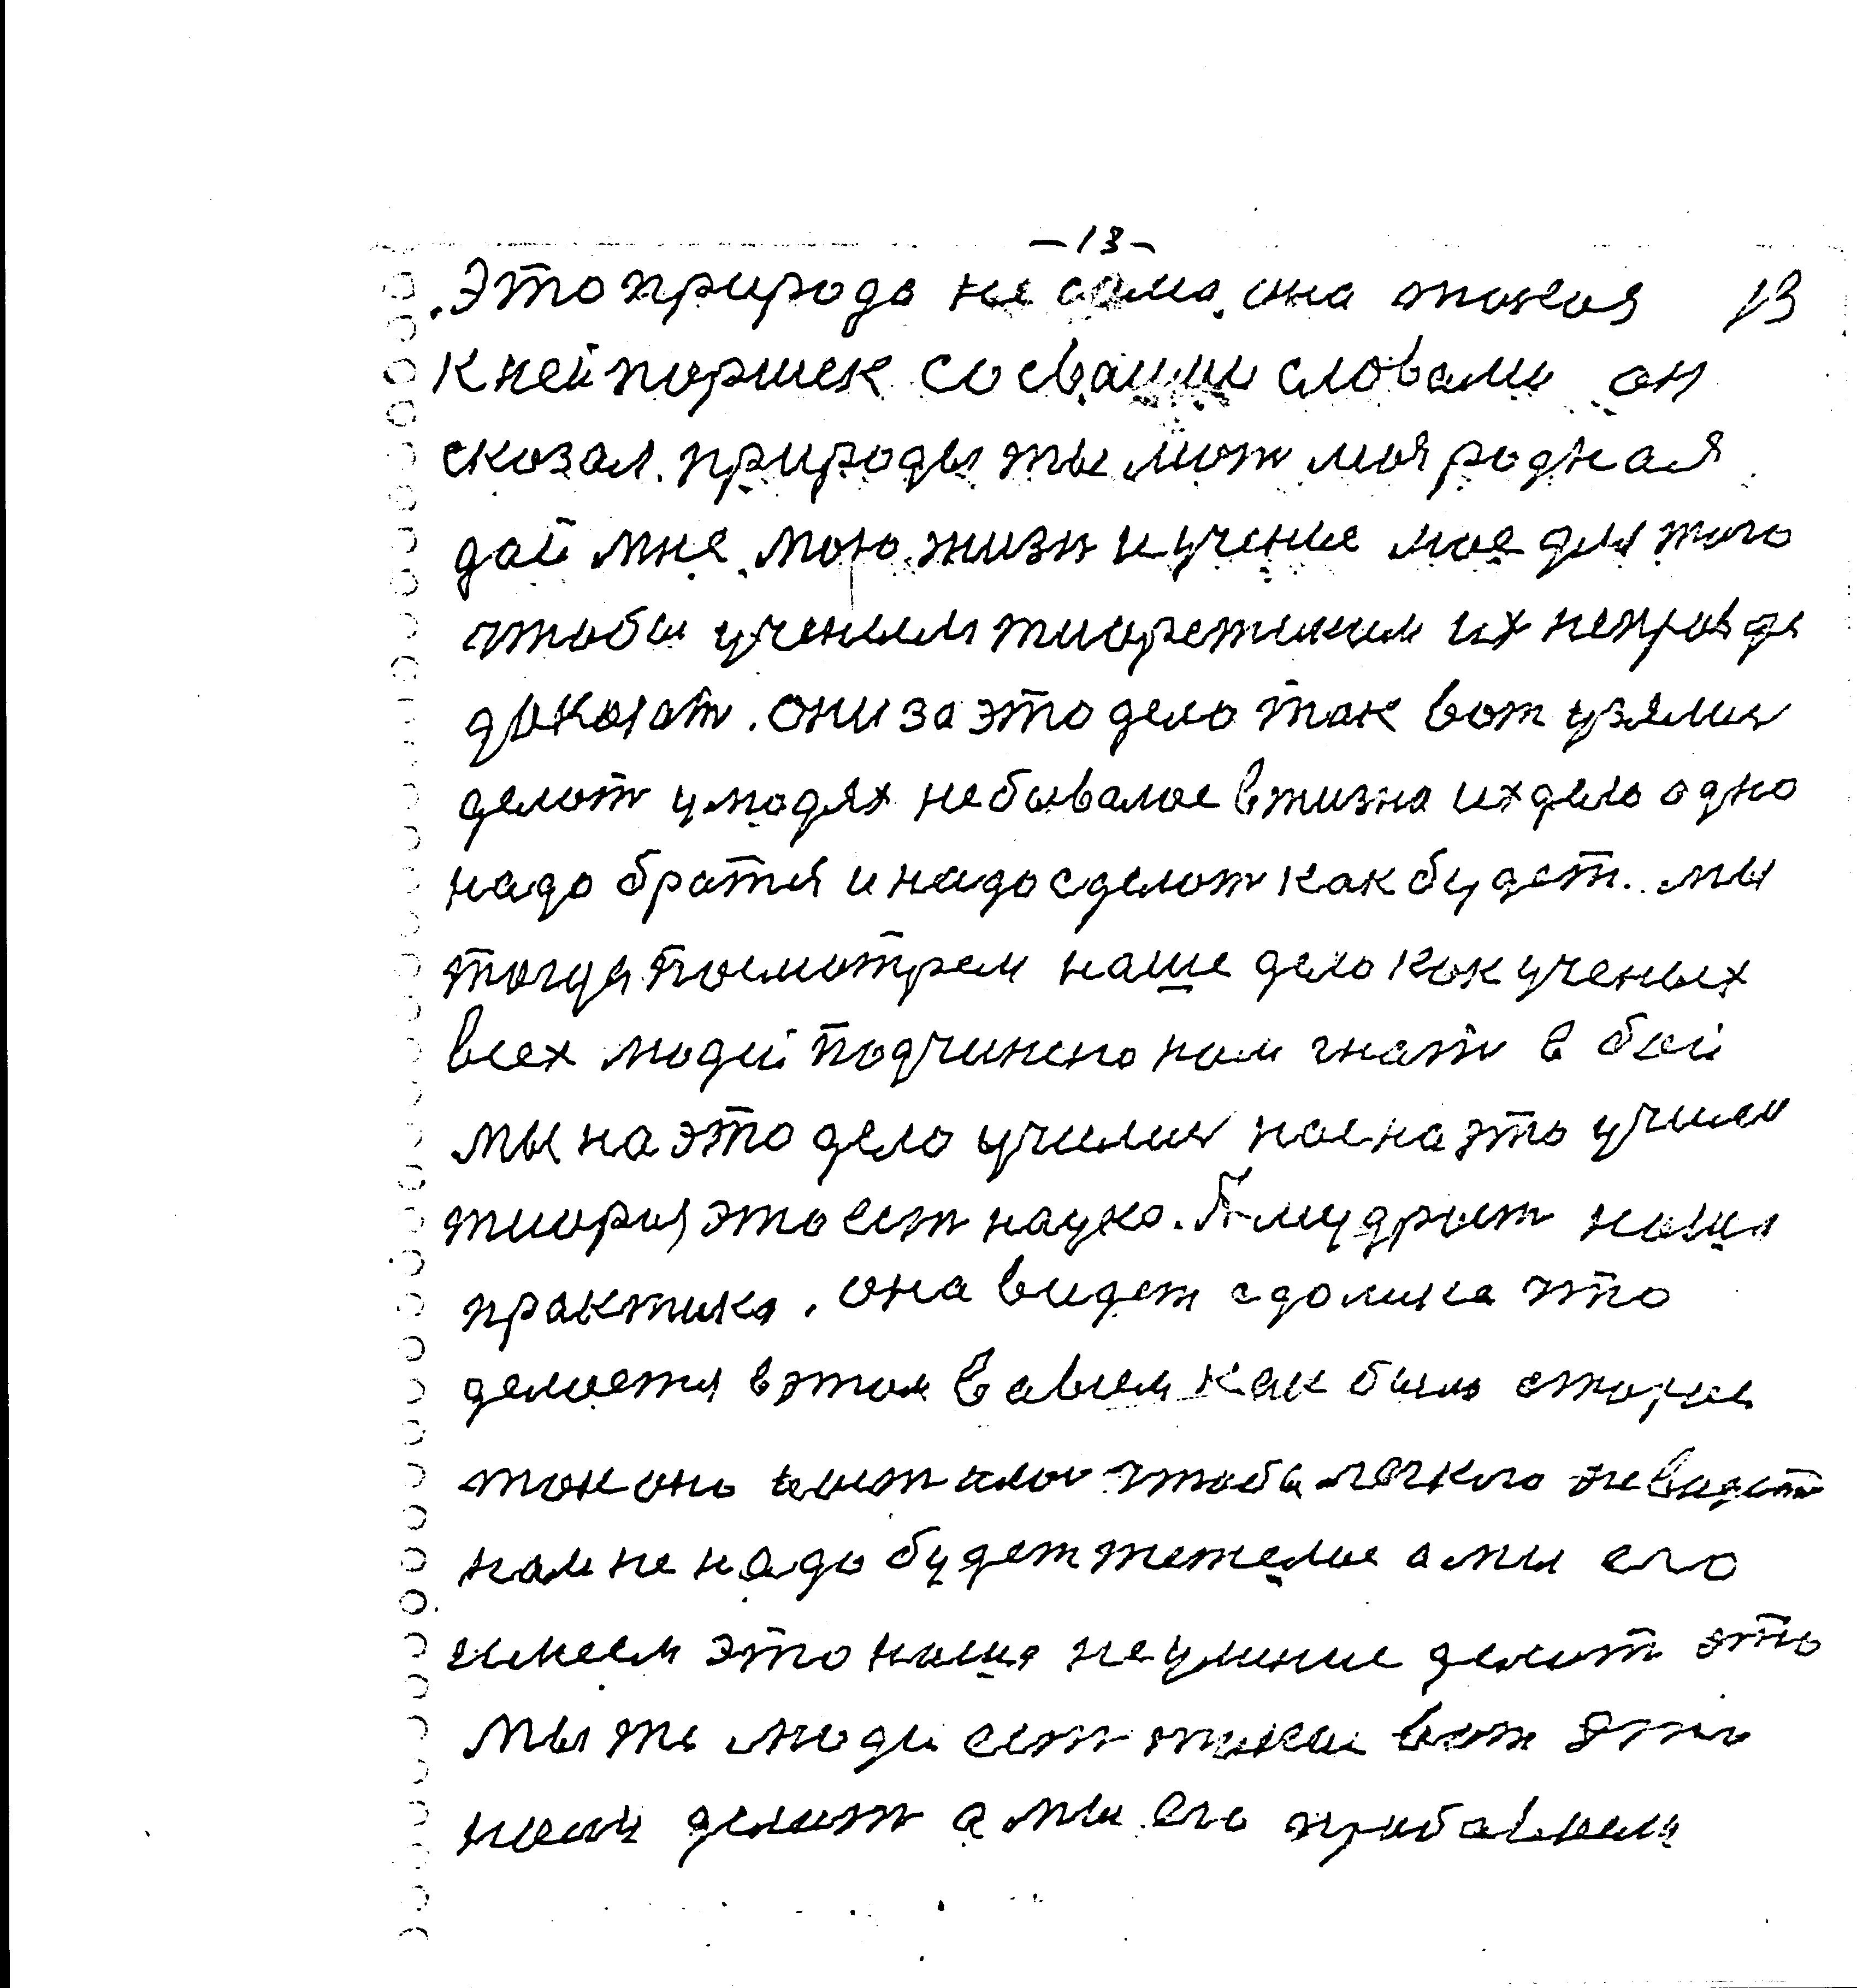 -13-
.Это природа не сама, она токая 13
к ней поршек со сваими словами он
сказал. природы ты мат моя родная
дай мне мою жизн и учение мое для того
чтобы ученым тиоретиким их неправда
докозат. они за это дело так вот узялис
делат у людях небывалое в жизна их дело одно
надо братся и надо сделат как будет. мы
тогда посмотрем наше дело как ученых
всех людей подчинено нам гнат в бой
мы на это дело училис нас на это училе
тиория это ест наука. А мудраст наша
практика. она видет сдолика что
делается в этом
как было старые
так оно
чтобы легкло
нам не надо будет тежелое а мы его
имеем это наша неумение делат это
мы те люди ест такии вот это
делат а мы его